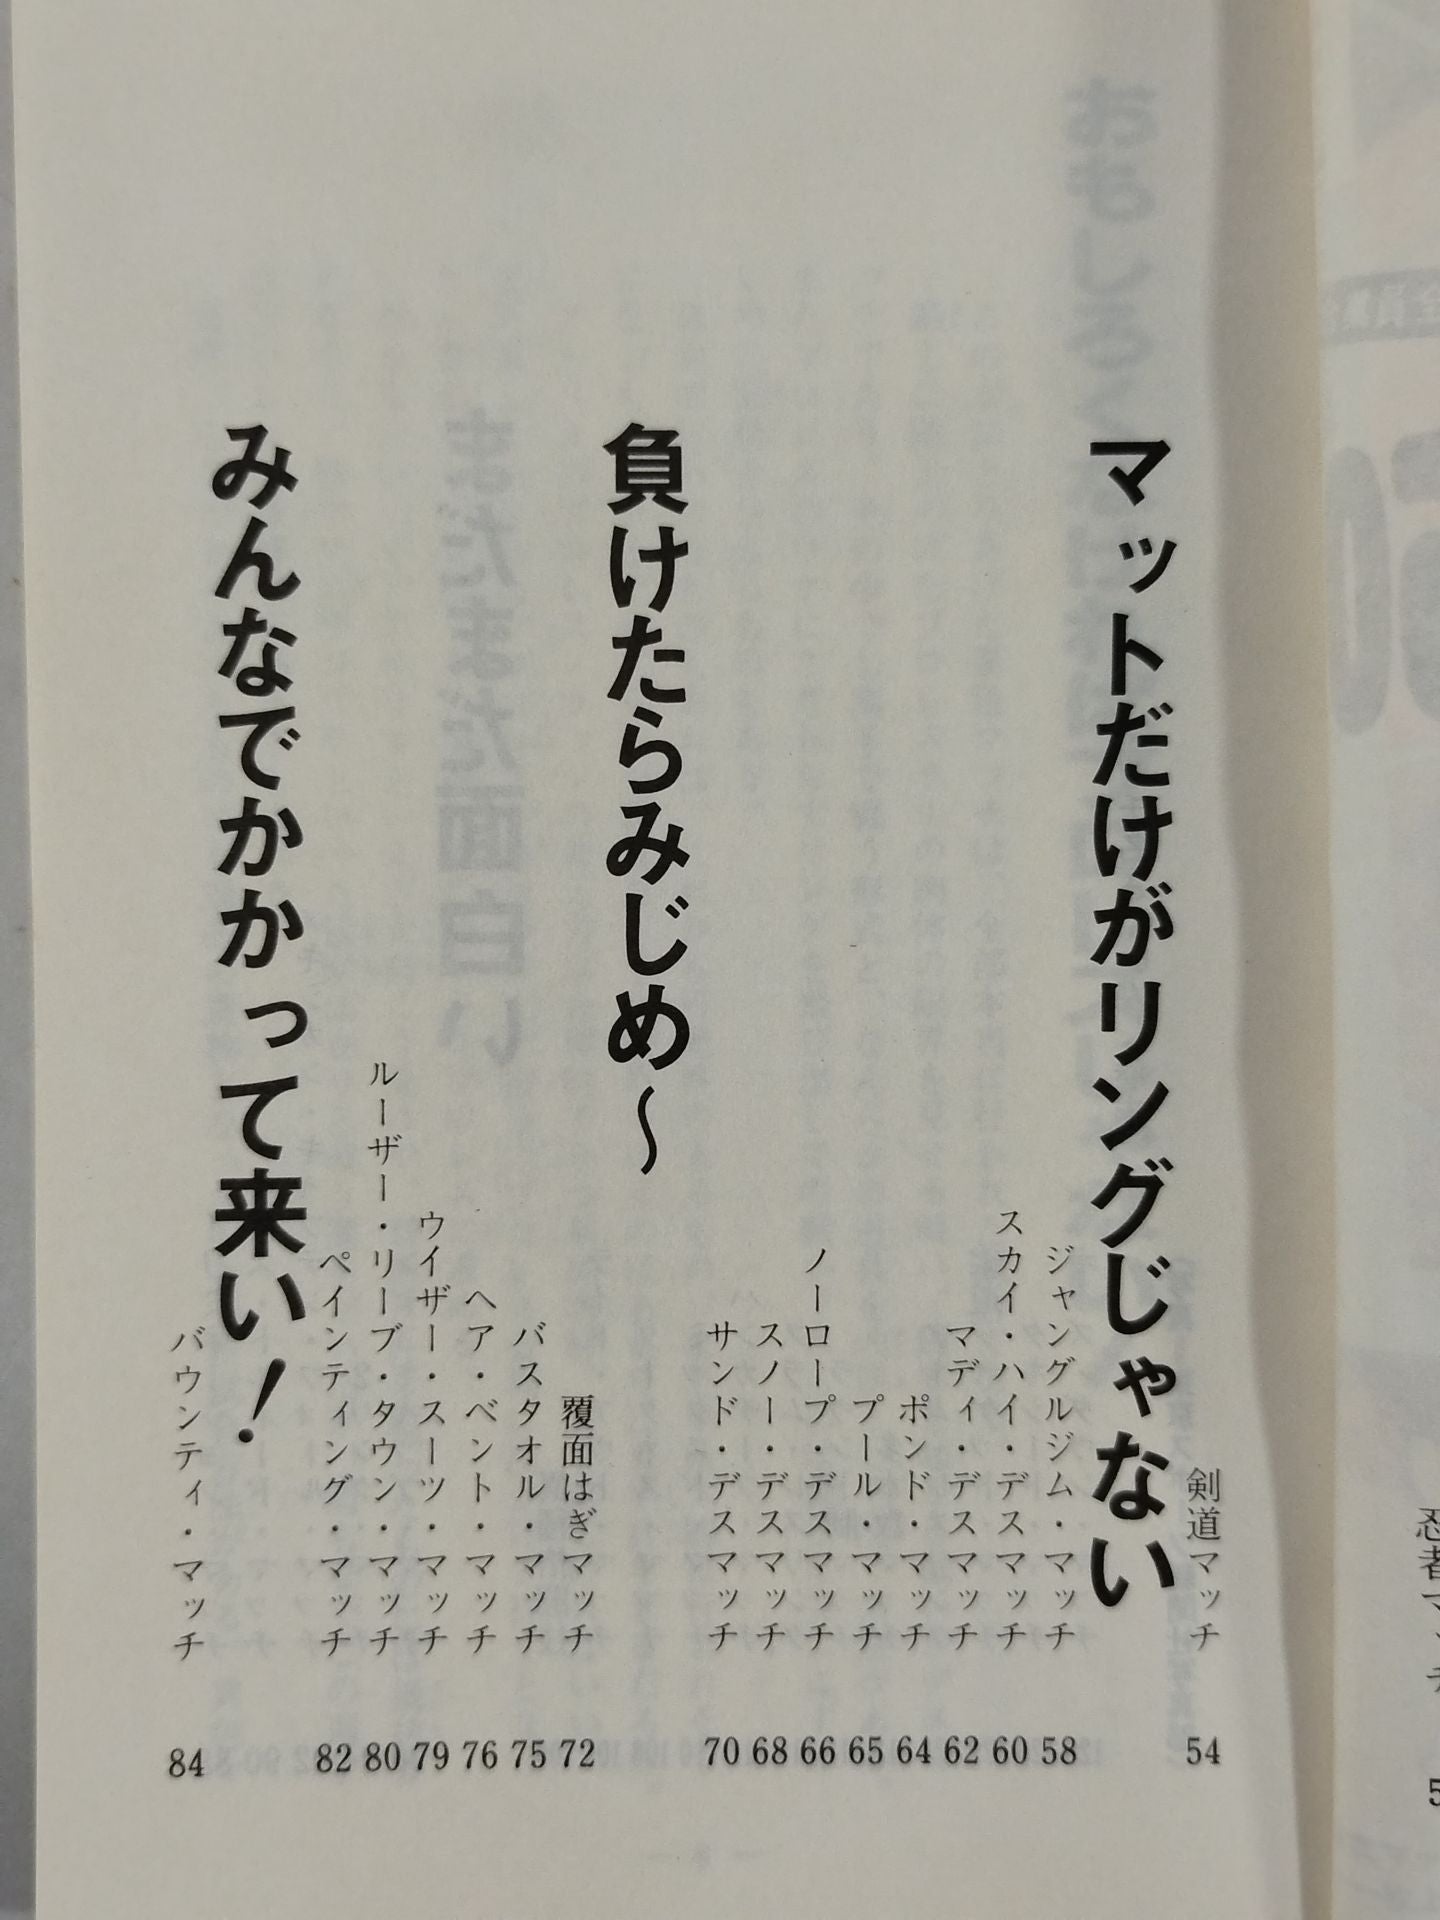 剣道マッチ 54
マットだけがリングじゃない
ジャングルジム・マッチ 58
スカイ・ハイ・デスマッチ 60
マディ・デスマッチ 62
ポンド・マッチ 64
プール・マッチ 65
ノーロープ・デスマッチ 66
スノー・デスマッチ 68
サンド・デスマッチ 70
負けたらみじめ〜
覆面はぎマッチ 72
バスタオル・マッチ 75
ヘア・ベント・マッチ 76
ウイザー・スーツ・マッチ 79
ルーザー・リーブ・タウン・マッチ 80
ペインティング・マッチ 82
みんなでかかって来い!
バウンティ・マッチ 84